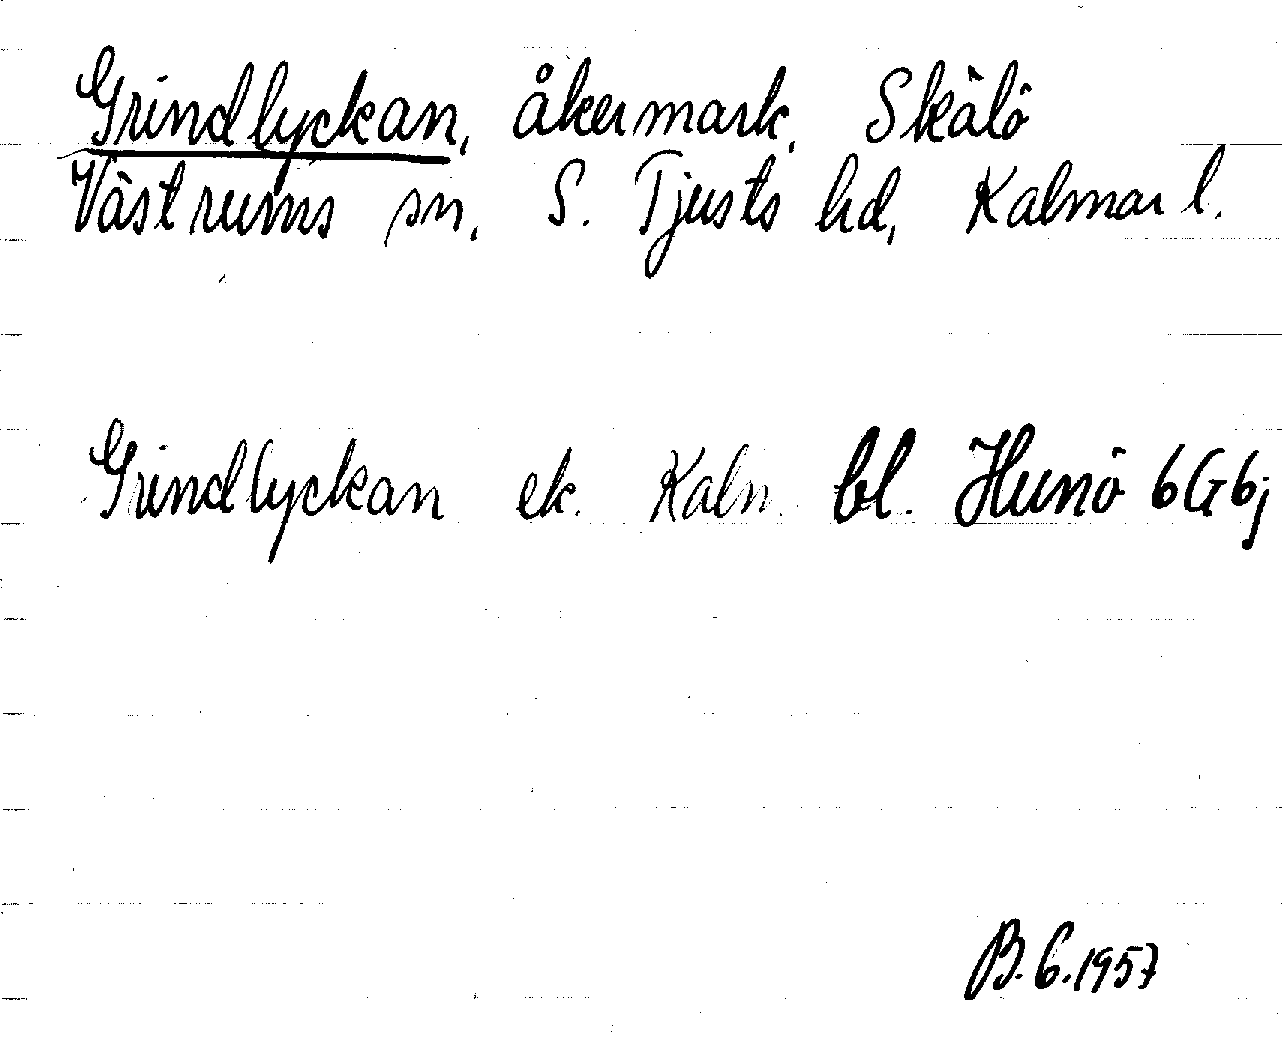 Grindlyckan, åkermark, Skälö
Västrums sn, S. Tjusts hd, Kalmar l.
Grindlyckan ek. Kaln. bl. Hunö 6G6j
B.G.1957